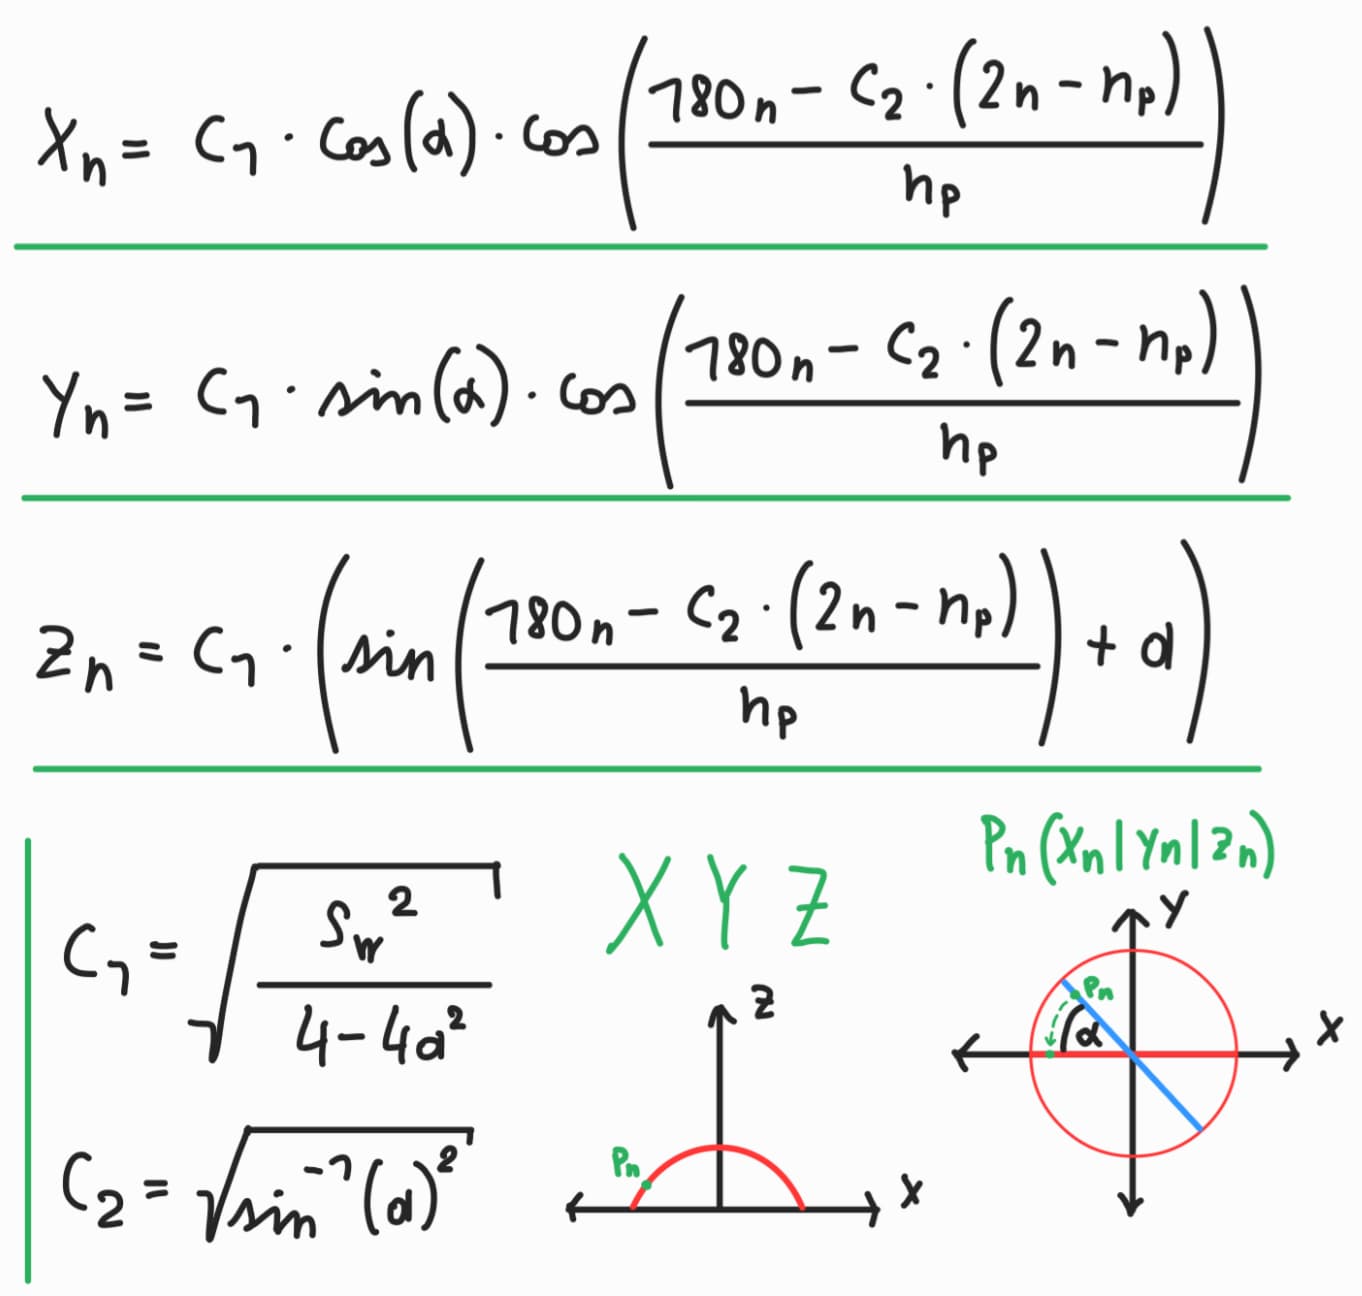 Xₙ = C₁ · cos(α) · cos((180n − C₂ · (2n − nₚ)) / nₚ)
Yₙ = C₁ · sin(α) · cos((180n − C₂ · (2n − nₚ)) / nₚ)
Zₙ = C₁ · (sin((180n − C₂ · (2n − nₚ)) / nₚ) + a)
C₁ = √(S_w² / (4 − 4a²))
C₂ = √(sin⁻¹(a)²)
X Y Z
Z
Pₙ
X
Pₙ (Xₙ | Yₙ | Zₙ)
Y
Pₙ
α
X